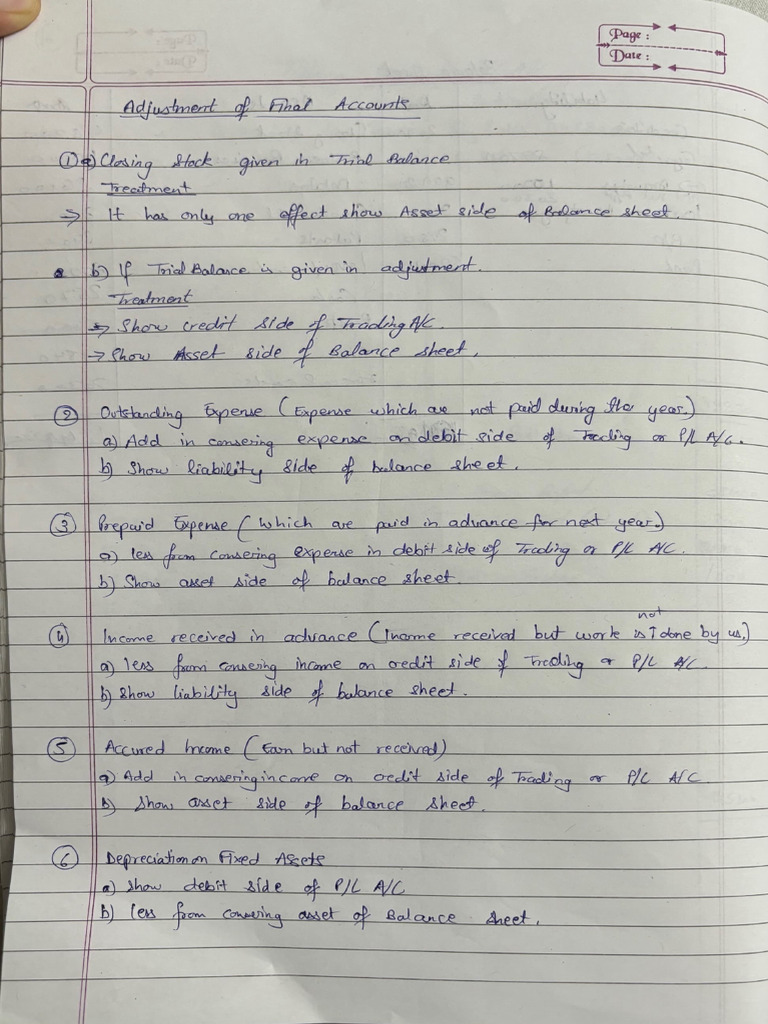 Page :
Date :
Adjustment of Final Accounts
① a) Closing Stock given in Trial Balance
Treatment
⇒ It has only one effect show Asset side of Balance sheet.
b) If Trial Balance is given in adjustment.
Treatment
→ Show credit side of Trading A/C.
→ Show Asset side of Balance sheet.
② Outstanding Expense (Expense which are not paid during the year.)
a) Add in consering expense on debit side of Trading or P/L A/C.
b) Show liability side of balance sheet.
③ Prepaid Expense (which are paid in advance for next year.)
a) less from consering expense in debit side of Trading or P/L A/C.
b) Show asset side of balance sheet.
④ Income received in advance (Income received but work is not done by us.)
a) less from consering income on credit side of Trading or P/L A/C.
b) Show liability side of balance sheet.
⑤ Accured Income (Earn but not received)
a) Add in consering income on credit side of Trading or P/L A/C
b) Show asset side of balance sheet.
⑥ Depreciation on Fixed Assets
a) Show debit side of P/L A/C
b) less from consering asset of Balance sheet.